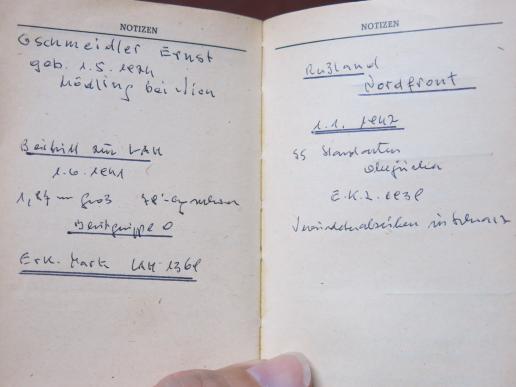 NOTIZEN
Gschmeidler Ernst
geb. 1.5.1924
Mödling bei Wien
Beitritt zur LAH
1.6.1941
1,87 m Groß
Blutgruppe O
Erk. Mark LAH 1368
NOTIZEN
Rußland
Nordfront
1.1. 1942
SS Standarten
E.K.2.
in Schwarz